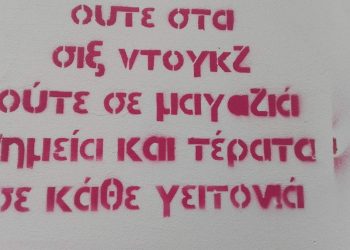 ουτε στα
σιξ ντουγκζ
ούτε σε μαγαζιά
σημεία και τέρατα
σε κάθε γειτονιά